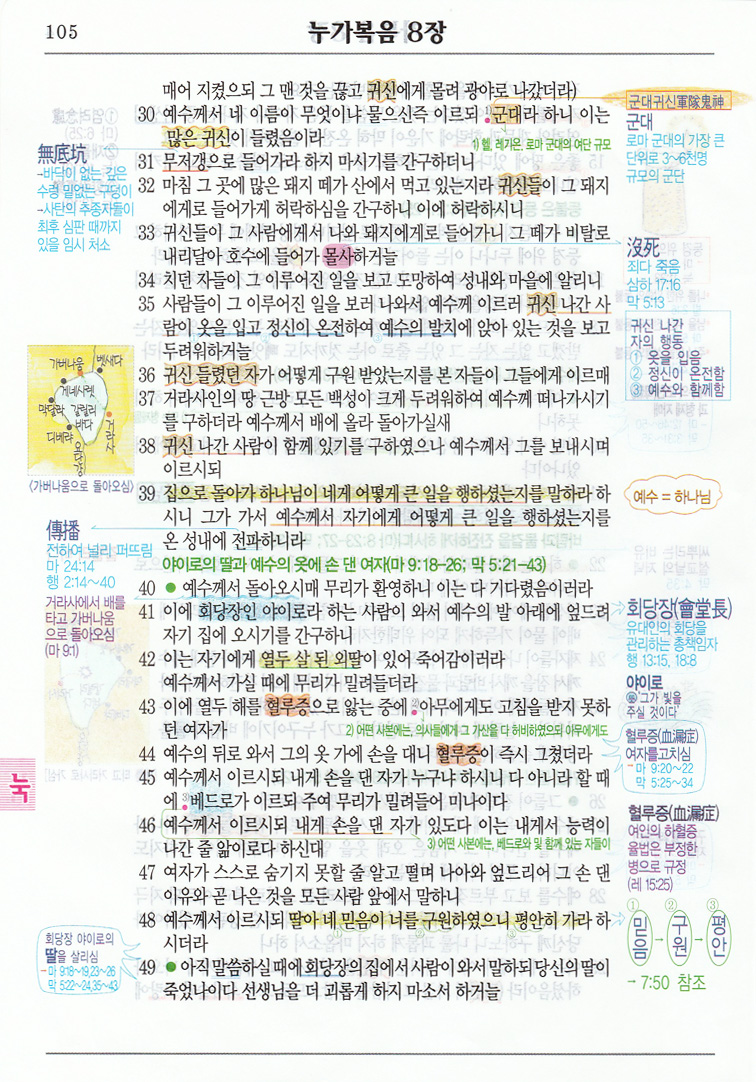 105
누가복음 8장
매어 지켰으되 그 맨 것을 끊고 귀신에게 몰려 광야로 나갔더라)
30 예수께서 네 이름이 무엇이냐 물으신즉 이르되 1)군대라 하니 이는
많은 귀신이 들렸음이라
1) 헬, 레기온. 로마 군대의 여단 규모
31 무저갱으로 들어가라 하지 마시기를 간구하더니
32 마침 그 곳에 많은 돼지 떼가 산에서 먹고 있는지라 귀신들이 그 돼지
에게로 들어가게 허락하심을 간구하니 이에 허락하시니
33 귀신들이 그 사람에게서 나와 돼지에게로 들어가니 그 떼가 비탈로
내리달아 호수에 들어가 몰사하거늘
34 치던 자들이 그 이루어진 일을 보고 도망하여 성내와 마을에 알리니
35 사람들이 그 이루어진 일을 보러 나와서 예수께 이르러 귀신 나간 사
람이 옷을 입고 정신이 온전하여 예수의 발치에 앉아 있는 것을 보고
두려워하거늘
36 귀신 들렸던 자가 어떻게 구원 받았는지를 본 자들이 그들에게 이르매
37 거라사인의 땅 근방 모든 백성이 크게 두려워하여 예수께 떠나가시기
를 구하더라 예수께서 배에 올라 돌아가실새
38 귀신 나간 사람이 함께 있기를 구하였으나 예수께서 그를 보내시며
이르시되
39 집으로 돌아가 하나님이 네게 어떻게 큰 일을 행하셨는지를 말하라 하
시니 그가 가서 예수께서 자기에게 어떻게 큰 일을 행하셨는지를
온 성내에 전파하니라
야이로의 딸과 예수의 옷에 손 댄 여자(마 9:18-26; 막 5:21-43)
40 ● 예수께서 돌아오시매 무리가 환영하니 이는 다 기다렸음이러라
41 이에 회당장인 야이로라 하는 사람이 와서 예수의 발 아래에 엎드려
자기 집에 오시기를 간구하니
42 이는 자기에게 열두 살 된 외딸이 있어 죽어감이러라
예수께서 가실 때에 무리가 밀려들더라
43 이에 열두 해를 혈루증으로 앓는 중에 2)아무에게도 고침을 받지 못하
던 여자가
2) 어떤 사본에는, 의사들에게 그 가산을 다 허비하였으되 아무에게도
44 예수의 뒤로 와서 그의 옷 가에 손을 대니 혈루증이 즉시 그쳤더라
45 예수께서 이르시되 내게 손을 댄 자가 누구냐 하시니 다 아니라 할 때
에 3)베드로가 이르되 주여 무리가 밀려들어 미나이다
46 예수께서 이르시되 내게 손을 댄 자가 있도다 이는 내게서 능력이
나간 줄 앎이로다 하신대
3) 어떤 사본에는, 베드로와 및 함께 있는 자들이
47 여자가 스스로 숨기지 못할 줄 알고 떨며 나아와 엎드리어 그 손 댄
이유와 곧 나은 것을 모든 사람 앞에서 말하니
48 예수께서 이르시되 딸아 네 믿음이 너를 구원하였으니 평안히 가라 하
시더라
49 ● 아직 말씀하실 때에 회당장의 집에서 사람이 와서 말하되 당신의 딸이
죽었나이다 선생님을 더 괴롭게 하지 마소서 하거늘
無底坑
→바닥이 없는 깊은
수렁 밑없는 구덩이
→사탄의 추종자들이
최후 심판 때까지
있을 임시 처소
가버나움
벳새다
게네사렛
막달라
갈릴리
바다
디베랴
거라사
요단강
〈가버나움으로 돌아오심〉
傳播
전하여 널리 퍼뜨림
마 24:14
행 2:14~40
거라사에서 배를
타고 가버나움
으로 돌아오심
(마 9:1)
눅
회당장 야이로의
딸을 살리심
→ 마 9:18~19,23~26
막 5:22~24,35~43
군대귀신軍隊鬼神
군대
로마 군대의 가장 큰
단위로 3~6천명
규모의 군단
沒死
죄다 죽음
삼하 17:16
막 5:13
귀신 나간
자의 행동
① 옷을 입음
② 정신이 온전함
③ 예수와 함께함
예수 = 하나님
회당장(會堂長)
유대인의 회당을
관리하는 총책임자
행 13:15, 18:8
야이로
'그가 빛을
주실 것이다'
혈루증(血漏症)
여자를고치심
→ 마 9:20~22
막 5:25~34
혈루증(血漏症)
여인의 하혈증
율법은 부정한
병으로 규정
(레 15:25)
① ② ③
믿음→구원→평안
→ 7:50 참조